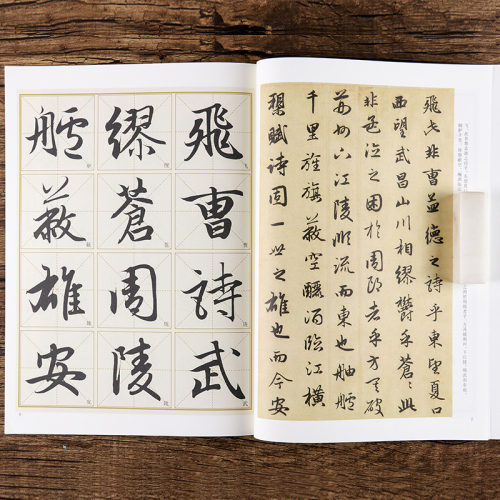 飛曹詩武
繆蒼周陵
艫蔽雄安
飛此非曹孟德之詩乎東望夏口
西望武昌山川相繆鬱乎蒼蒼此
非孟德之困於周郎者乎方其破
荊州下江陵順流而東也舳艫
千里旌旗蔽空釃酒臨江橫
槊賦詩固一世之雄也而今安